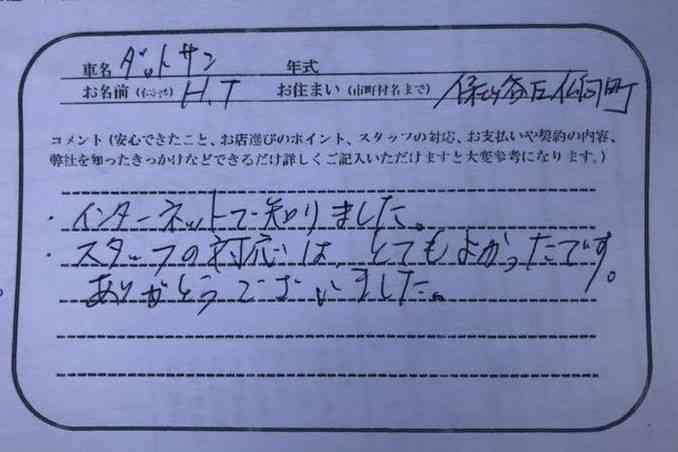 車名 ダットサン 年式
お名前 (イニシャル) H.T お住まい (市町村名まで) 保土ヶ谷区仏向町
コメント (安心できたこと、お店選びのポイント、スタッフの対応、お支払いや契約の内容、
弊社を知ったきっかけなどできるだけ詳しくご記入いただけますと大変参考になります。)
・インターネットで知りました。
・スタッフの対応は、とてもよかったです。
ありがとうございました。